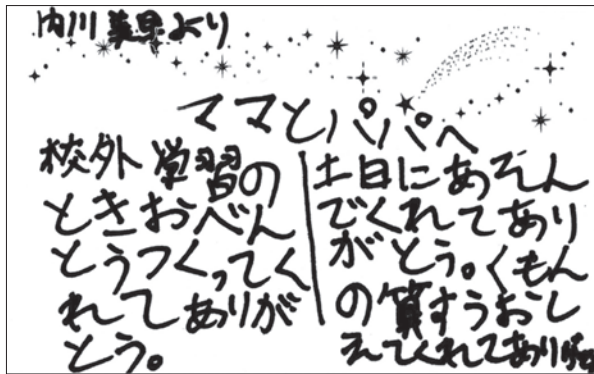 内川 美早より
ママとパパへ
校外学習の
ときおべん
とうつくってく
れてありが
とう。
土日にあそん
でくれてあり
がとう。くもん
の算すうおし
えてくれてありがとう